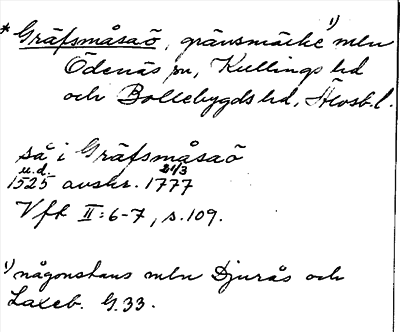 * Gräfsmåsaö, gränsmärke 1) mln
Ödenäs sn, Kullings hd
och Bollebygds hd, Älvsb. l.
så i Gräfsmåsaö
1525 u.d. avskr. 1777 21/3
Vft II:6-7, s.109.
1) någonstans mln Djurås och
Laxeb. G.33.